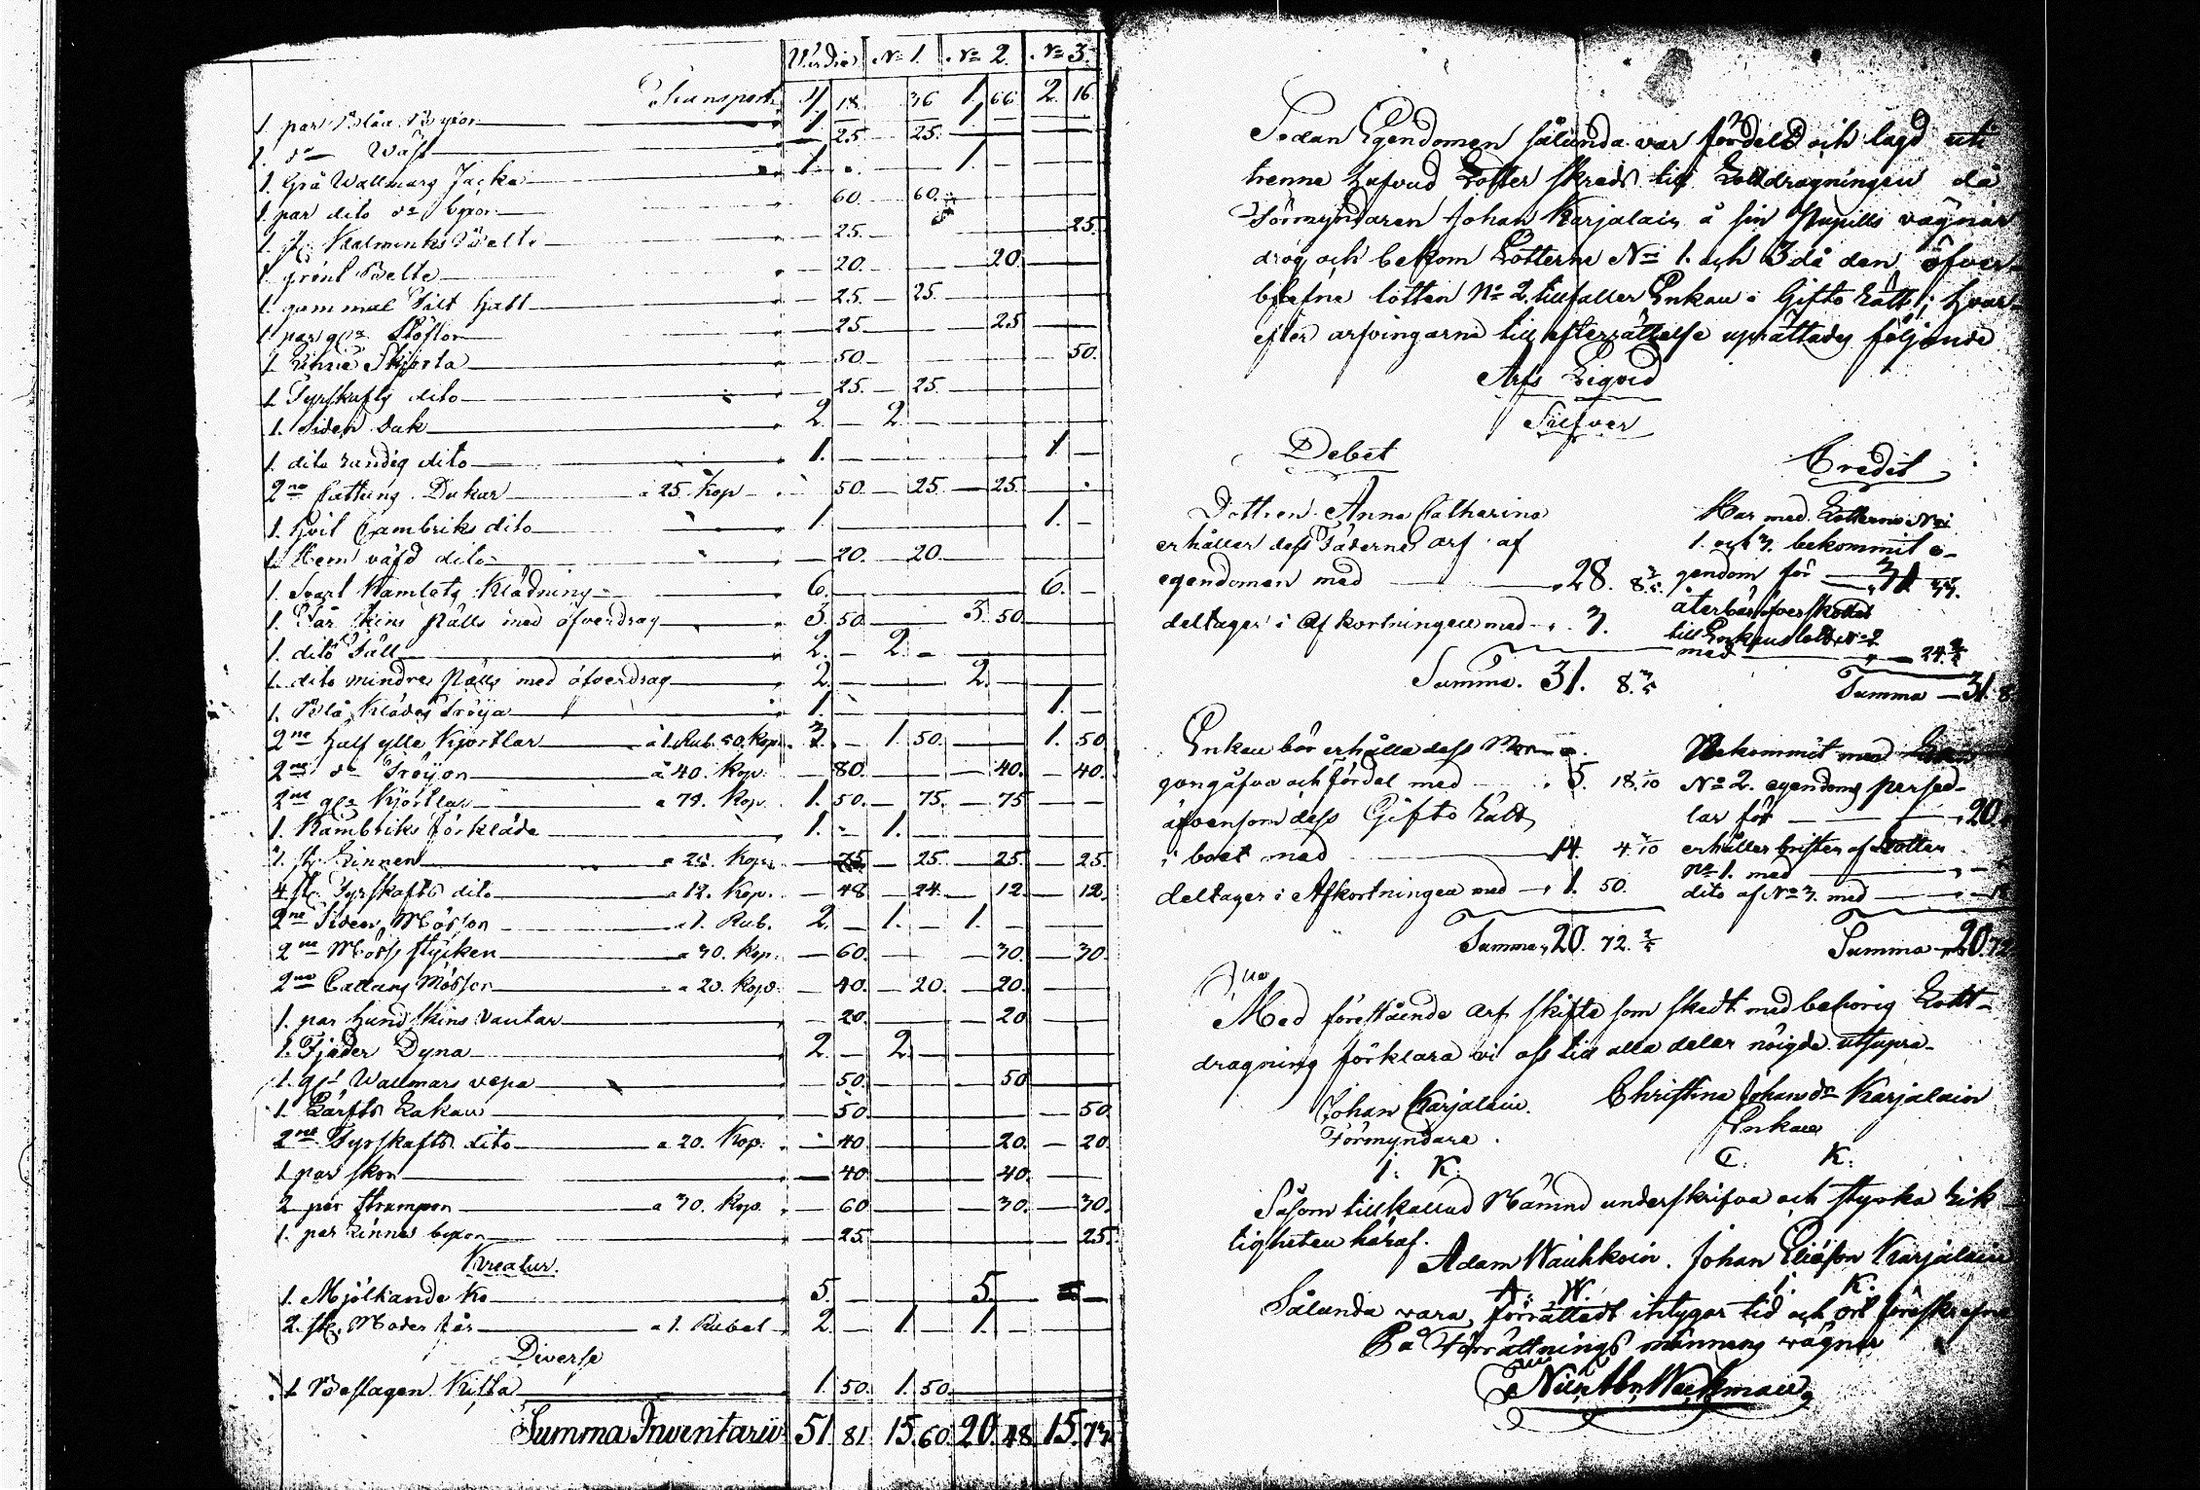 Värdie. No 1. No 2. No 3.
Transport 4. 18. 36 1. 66. 2. 16.
1. par Blåa Byxor 1. — — 1. —
1. do Wäst 25. 25.
1. Grå Wallmars Jacka 1. 1. —
1. par dito do byxor 60. 60.
1. st. Kalminks Bälte 25. 25.
1. grönt Bälte 20. 20.
1. gammal Filt hatt 25. 25.
1 par gla Stöflor 25. 25
1 Linne Skjorta 50. 50.
1 Fyrskafts dito 25. 25.
1. Siden Duk 2. — 2. —
1. dito randig dito 1. — 1 —
2ne Cattuns Dukar a 25. Kop 50. 25. 25.
1. hvit Cambriks dito 1. 1. —
1. Hem väfd dito 20. 20
1. Svart Kamlots Klädning 6. 6. —
1. Får skins Fälls med öfverdrag 3. 50. 3. 50.
1. dito Fäll 2. — 2. —
1. dito mindre Fälls med öfverdrag 2. 2.
1. Blå Klädes Tröya 1. 1. —
2ne half ylle Kjortlar a 1. Rub. 50. Kop. 3. — 1. 50. 1. 50
2ne do Tröyor a 40. Kop. 80. 40. 40.
2ne gla Kjortlar a 75. Kop. 1. 50. 75. 75
1. Kambriks förkläde 1. — 1.
3. st. Linnen a 25. Kop. 75. 25. 25. 25.
4 st. Fyrskafts dito a 12. Kop. 48. 24. 12. 12.
2ne Siden Mössor a 1. Rub. 2. — 1. — 1. —
2ne Möss stycken a 30. Kop. 60. 30. 30.
2ne Cattuns Mössor a 20. Kop. 40. 20. 20.
1. par hund skins Vantar 20. 20
1. Fjäder Dyna 2. — 2. —
1. glt Wallmars vepa 50. 50
1. Lärfts Lakan 50. 50
2ne Fyrskafts dito a 20. Kop. 40. 20. 20
1 par skor 40. 40.
2 par strumpor a 30. Kop. 60 30. 30.
1. par Linne byxor 25. 25.
Kreatur.
1. Mjölkande Ko 5. 5.
2. st. Moder får a 1. Rubel 2. — 1. — 1. —
Diverse
1 Beslagen Kista 1. 50. 1. 50.
Summa Inventarii 51. 81. 15. 60. 20. 48. 15. 73.
Sedan Egendomen sålunda var fördeld och lagd uti
trenne hufvud Lotter skreds till Lottdragningen då
Förmyndaren Johan Karjalain å sin Pupills vägnar
drog och bekom Lotterne No 1. och 3 då den öfver-
blefne lotten No 2. tillfaller Enkan i Gifto Rätt; hvar-
efter arfvingarne till efterrättelse uprättades följande
Arfs Liqvid
Silfver
Debet
Dottren Anna Catharina
erhåller dess Fäderne arf af
egendomen med 28. 8 3/5.
deltager i Afkortningen med 3.
Summa. 31. 8. 3/5
Credit
Har med Lotterne No
1. och 3. bekommit e-
gendom för 31 33.
återbär öfverskottet
till Enkans lott No 2
med 24. 2/5
Summa 31. 8
Enkan bör erhålla dess Mor-
gongåfva och fördel med 5. 18. 1/10
äfvensom dess Gifto Rätt
i boet med 14. 4 3/10
deltager i Afkortningen med 1. 50.
Summa 20. 72. 2/5
Bekommit med
No 2. egendoms persed-
lar för 20.
erhåller brister af Lotten
No 1. med
dito af No 3. med
Summa 20. 72
Med förestående arf skifte som skedt med behörig Lott-
dragning förklara vi oss till alla delar nöigde utsupra.
Johan Karjalain. Christina Johansdr Karjalain
Förmyndare. Enkan
J. K. C. K.
Såsom tillkallad Nämnd underskrifva och styrka Rik-
tigheten häraf.
Adam Wauhkoin. Johan Eliasson Karjalain
A. W. J. K.
Sålunda vara förrättadt intygar tid och ort föreskrefne
På Förrättnings männens vägnar